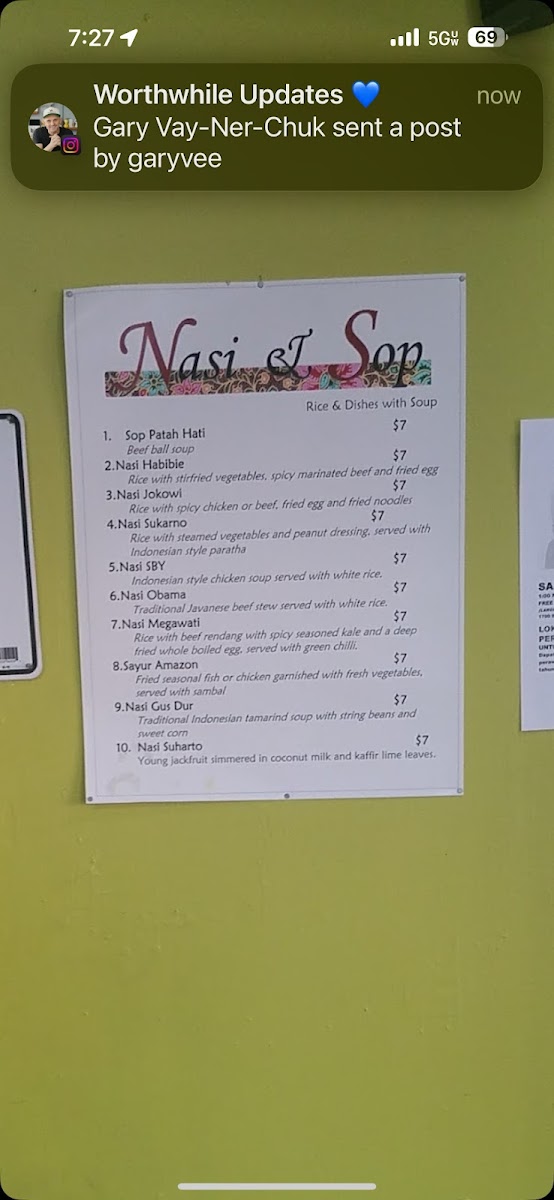 7:27
5GUW 69
Worthwhile Updates 💙 now
Gary Vay-Ner-Chuk sent a post
by garyvee
Nasi & Sop
Rice & Dishes with Soup
1. Sop Patah Hati $7
Beef ball soup
2.Nasi Habibie $7
Rice with stirfried vegetables, spicy marinated beef and fried egg
3.Nasi Jokowi $7
Rice with spicy chicken or beef, fried egg and fried noodles
4.Nasi Sukarno $7
Rice with steamed vegetables and peanut dressing, served with
Indonesian style paratha
5.Nasi SBY $7
Indonesian style chicken soup served with white rice.
6.Nasi Obama $7
Traditional Javanese beef stew served with white rice.
7.Nasi Megawati $7
Rice with beef rendang with spicy seasoned kale and a deep
fried whole boiled egg, served with green chilli.
8.Sayur Amazon $7
Fried seasonal fish or chicken garnished with fresh vegetables,
served with sambal
9.Nasi Gus Dur $7
Traditional Indonesian tamarind soup with string beans and
sweet corn
10. Nasi Suharto $7
Young jackfruit simmered in coconut milk and kaffir lime leaves.
SA
FREE
LOK
PER
UNT